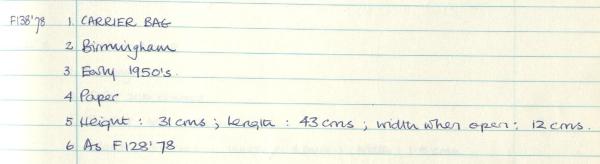 F138'78 1. CARRIER BAG
2 Birmingham
3 Early 1950's.
4 Paper
5 Height : 31 cms ; Length : 43 cms ; width when open : 12 cms.
6 As F128'78